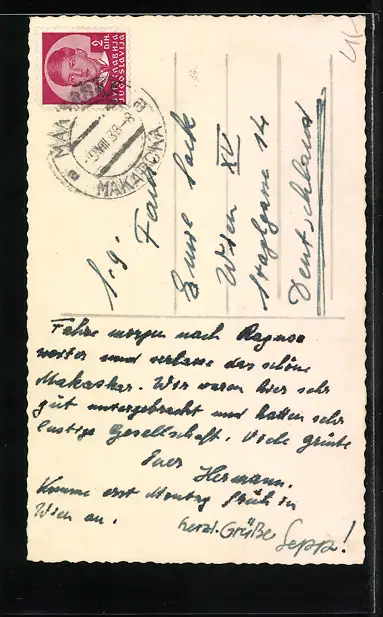 2
DIN.
ЈУГОСЛАВИЈА
JUGOSLAVIJA
МАКАРСКА
MAKARSKA
Fam.
Emil
Wien XV
14
Deutschland
Fahre morgen nach Ragusa
weiter und verlasse das schöne
Makaskar. Wir waren hier sehr
gut untergebracht und hatten sehr
lustige Gesellschaft. Viele Grüße
Euer Hermann.
Komme erst Montag früh in
Wien an.
herzl. Grüße
Sepp!